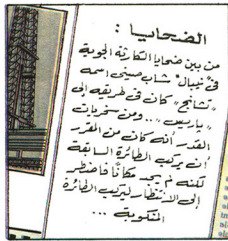 الضحايا :
من بين ضحايا الكارثة الجوية
في "نيبال" شاب صيني اسمه
"تشانج" كان في طريقه إلى
"باريس" .. ومن سخريات
القدر أنه كان من المقرر
أن يركب الطائرة السابقة
لكنه لم يجد مكانًا فاضطر
إلى الانتظار ليركب الطائرة
المنكوبة ...